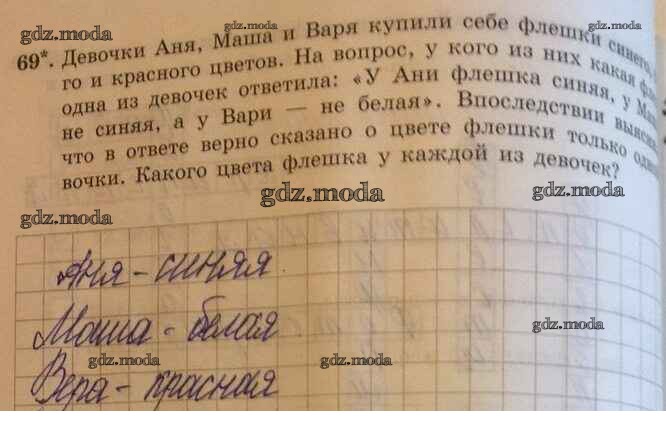 gdz.moda gdz.moda gdz.moda
69*. Девочки Аня, Маша и Варя купили себе флешки синего,
го и красного цветов. На вопрос, у кого из них какая
одна из девочек ответила: «У Ани флешка синяя, у
не синяя, а у Вари — не белая». Впоследствии
что в ответе верно сказано о цвете флешки только
вочки. Какого цвета флешка у каждой из девочек?
gdz.moda gdz.moda gdz.moda
gdz.moda
gdz.moda
gdz.moda
Аня - синяя
gdz.moda gdz.moda gdz.moda
Маша - белая
gdz.moda gdz.moda
gdz.moda
Вера - красная